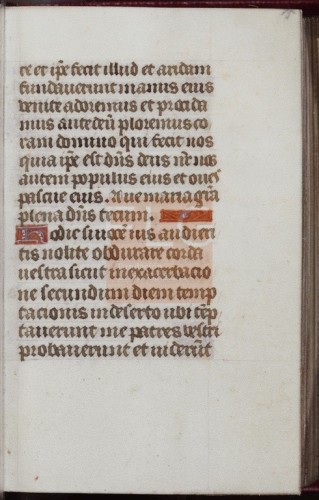 re et ip̄e fecit illud et aridam
fundaverunt manus eius
venite adoremus et procida
mus ante deū ploremus co
ram domino qui fecit nos
quia ip̄e est dn̄s deus nr̄ nos
autem populus eius et oves
pascue eius. Ave maria gr̄a
plena dn̄s tecum.
Hodie si voce eius audieri
tis nolite obdurare corda
vestra sicut in exacerbacio
ne secundum diem temp
tacionis in deserto ubi tēp
taverunt me patres vestri
probaverunt et viderūt